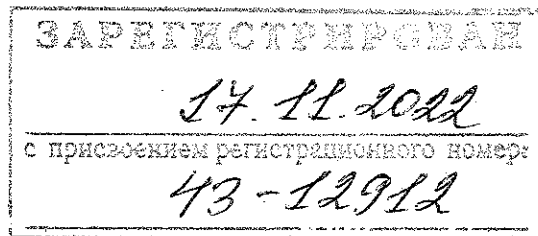 ЗАРЕГИСТРИРОВАН
17.11.2022
с присвоением регистрационного номера
43-12912